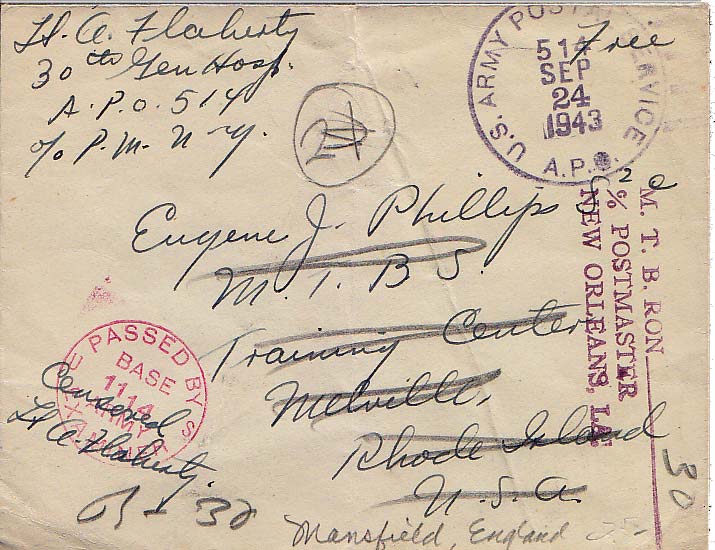 Lt. A. Flaherty
30th Gen Hosp.
A.P.O. 514
c/o P.M. N-Y.
Free
U.S. ARMY POSTAL SERVICE
514
SEP
24
1943
A.P.O.
Eugene J. Phillips S 2 c
M.T.B S.
Training Center
Melville,
Rhode Island
U.S.A.
M. T. B. RON 30
c/o POSTMASTER
NEW ORLEANS, LA.
PASSED BY
BASE
1114
ARMY
Censored
Lt A. Flaherty.
B-30
Mansfield, England